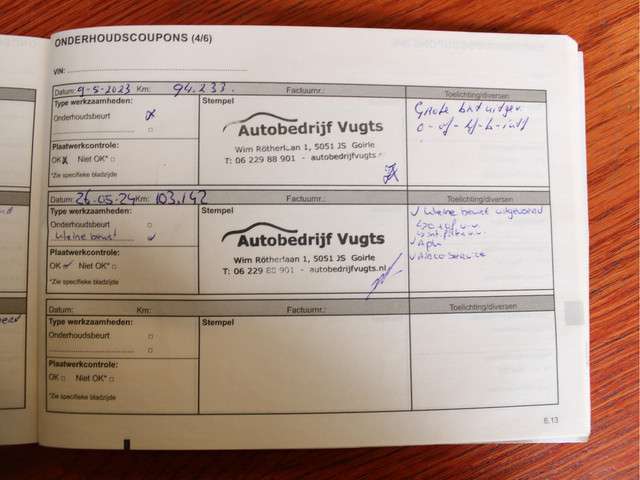 ONDERHOUDSCOUPONS (4/6)
VIN:
Datum: 9-5-2023 Km: 94.233. Factuurnr.: Toelichting/diversen
Type werkzaamheden:
Onderhoudsbeurt
Stempel
Autobedrijf Vugts
Wim Rötherlaan 1, 5051 JS Goirle
T: 06 229 88 901 - autobedrijfvugts.
Plaatwerkcontrole:
OK X Niet OK*
*Zie specifieke bladzijde
Grote beurt uitgev.
Datum: 26-05-24 Km: 103.142 Factuurnr.: Toelichting/diversen
Type werkzaamheden:
Onderhoudsbeurt
kleine beurt
Stempel
Autobedrijf Vugts
Wim Rötherlaan 1, 5051 JS Goirle
T: 06 229 88 901 - autobedrijfvugts.nl
Plaatwerkcontrole:
OK Niet OK*
*Zie specifieke bladzijde
kleine beurt uitgevoerd
Apk
Airco service
Datum: Km: Factuurnr.: Toelichting/diversen
Type werkzaamheden:
Onderhoudsbeurt
Stempel
Plaatwerkcontrole:
OK Niet OK*
*Zie specifieke bladzijde
6.13